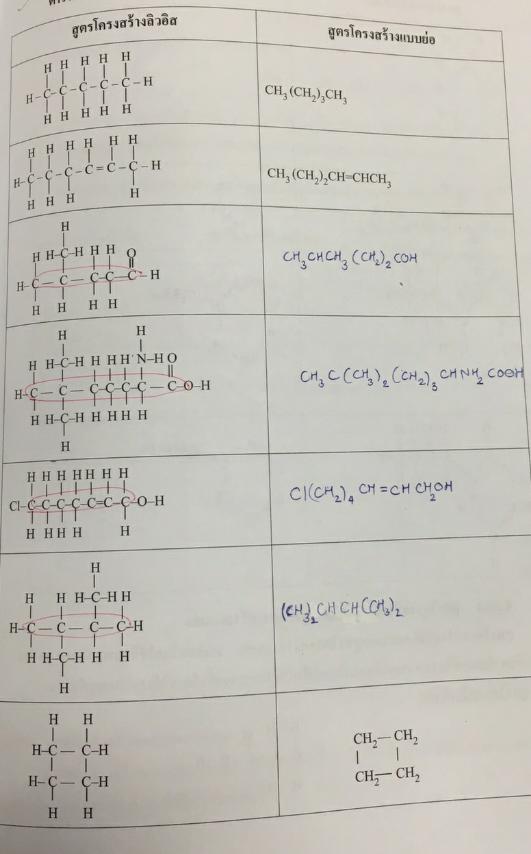 สูตรโครงสร้างลิวอิส
สูตรโครงสร้างแบบย่อ
H H H H H
H-C-C-C-C-C-H
H H H H H
CH₃(CH₂)₃CH₃
H H H H H H
H-C-C-C-C=C-C-H
H H H H
CH₃(CH₂)₂CH=CHCH₃
H
H H-C-H H H O
H-C-C-C-C-C-H
H H H H
CH₃CHCH₃(CH₂)₂COH
H H
H H-C-H H H H N-H O
H-C-C-C-C-C-C-C-O-H
H H-C-H H H H H
H
CH₃C(CH₃)₂(CH₂)₃CHNH₂COOH
H H H H H H H
Cl-C-C-C-C-C=C-C-O-H
H H H H H
Cl(CH₂)₄CH=CHCH₂OH
H
H H H-C-H H
H-C-C-C-C-H
H H-C-H H H
H
(CH₃)₂CHCH(CH₃)₂
H H
H-C-C-H
H-C-C-H
H H
CH₂-CH₂
CH₂-CH₂